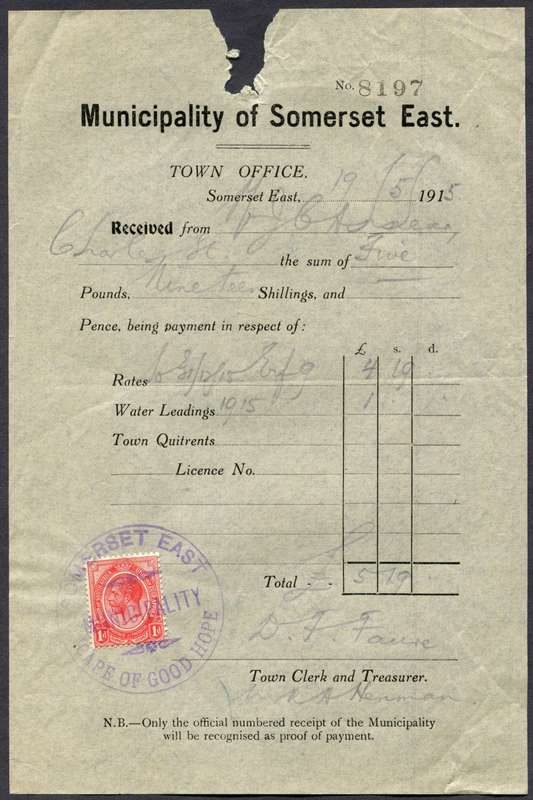 No. 8197
Municipality of Somerset East.
TOWN OFFICE,
Somerset East, 19/5/1915
Received from
Charles St. the sum of Five
Pounds, Nineteen Shillings, and
Pence, being payment in respect of:
£ s. d.
Rates to 31/12/15 Erf 9 4 19
Water Leadings 1915 1
Town Quitrents
Licence No.
Total - - £ 5 19
D. F. Faure
Town Clerk and Treasurer.
Henman
SOMERSET EAST
MUNICIPALITY
CAPE OF GOOD HOPE
N.B.—Only the official numbered receipt of the Municipality
will be recognised as proof of payment.